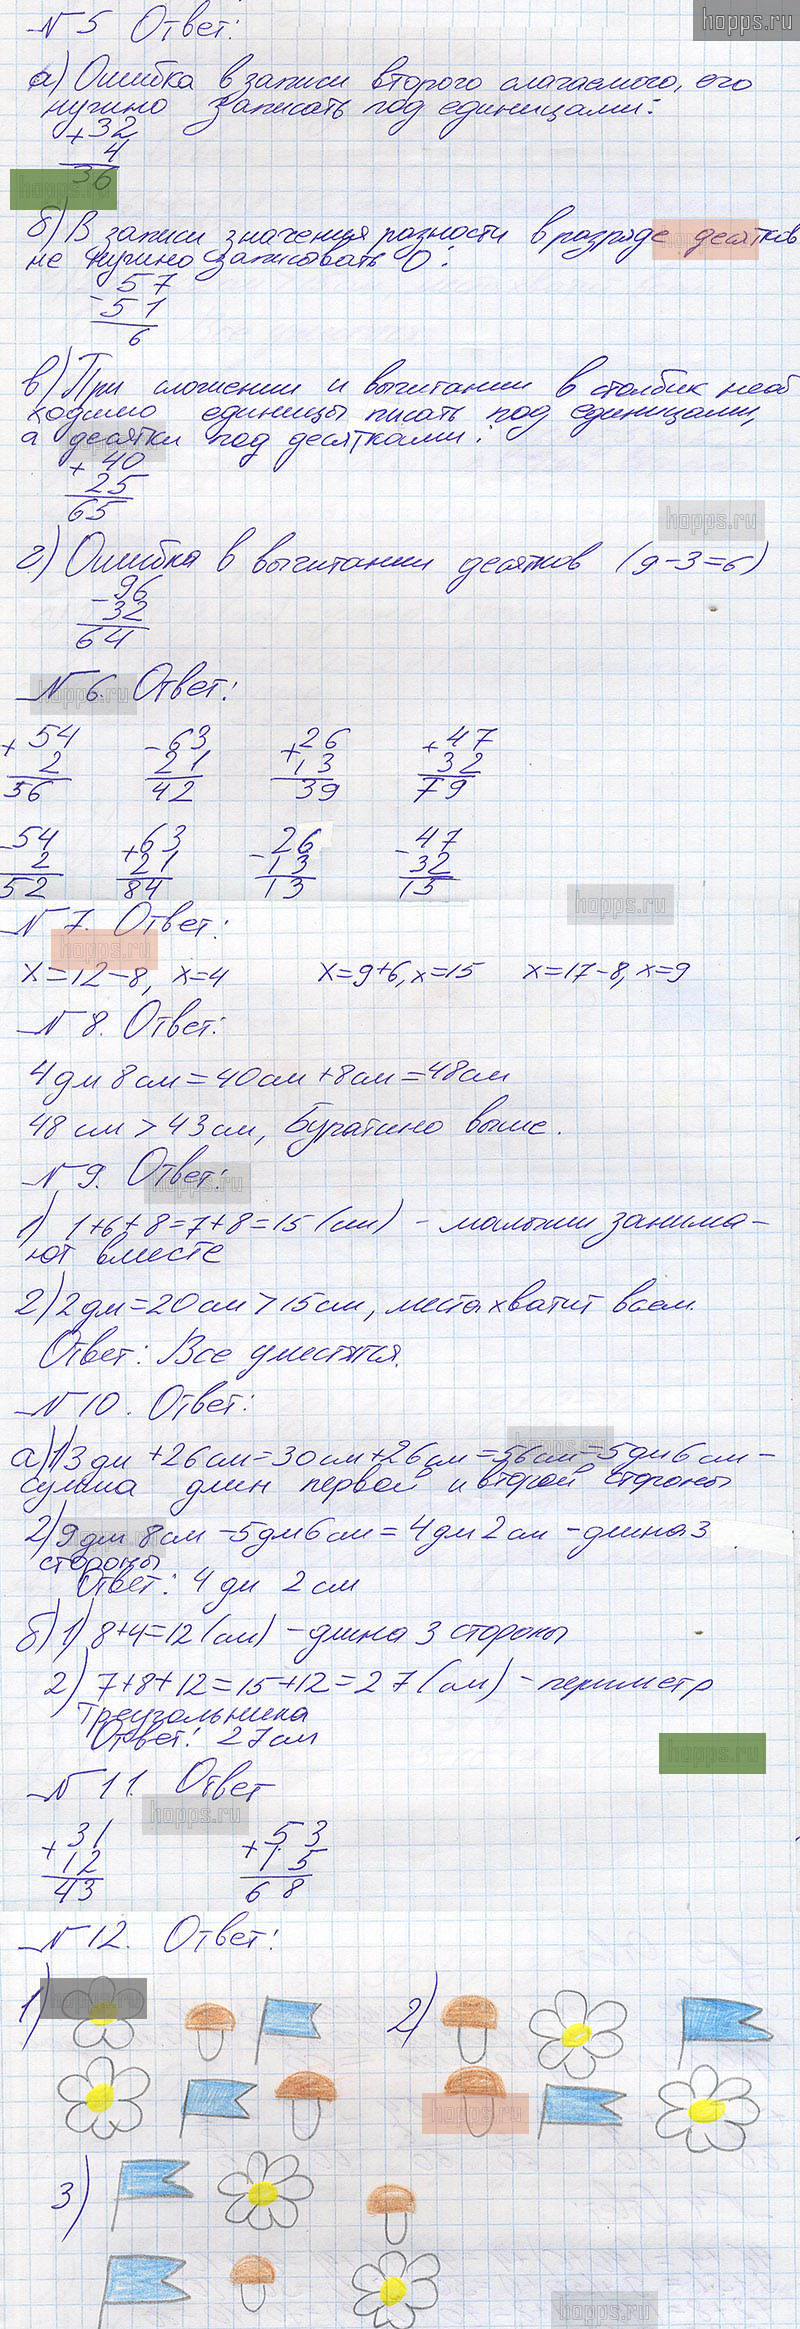 hopps.ru
№5 Ответ:
а) Ошибка в записи второго слагаемого, его
нужно записать под единицами:
+32
4
36
б) В записи значения разности в разряде десятков
не нужно записывать 0:
-57
51
6
в) При сложении и вычитании в столбик необ
ходимо единицы писать под единицами,
а десятки под десятками:
+40
25
65
hopps.ru
г) Ошибка в вычитании десятков (9-3=6)
-96
32
64
№6. Ответ:
+54 -63 +26 +47
2 21 13 32
56 42 39 79
-54 +63 -26 -47
2 21 13 32
52 84 13 15
hopps.ru
№7. Ответ:
x=12-8, x=4 x=9+6, x=15 x=17-8, x=9
№8. Ответ:
4дм 8см=40см+8см=48см
48 см > 43см, Буратино выше.
№9. Ответ:
1) 1+6+8=7+8=15 (см) - малыши занима-
ют вместе
2) 2дм=20см>15см, места хватит всем
Ответ: Все уместятся.
№10. Ответ:
а) 1) 3дм +26см=30см+26см=56см=5дм6см-
сумма длин первой и второй стороны
2) 9дм 8см -5дм6см=4дм2см -длина 3
стороны
Ответ: 4 дм 2см
б) 1) 8+4=12 (см) -длина 3 стороны
2) 7+8+12=15+12=27 (см) - периметр
треугольника
Ответ: 27см
hopps.ru
№11. Ответ
hopps.ru
+31 +53
12 15
43 68
№12. Ответ:
1) 2)
hopps.ru
3)
hopps.ru